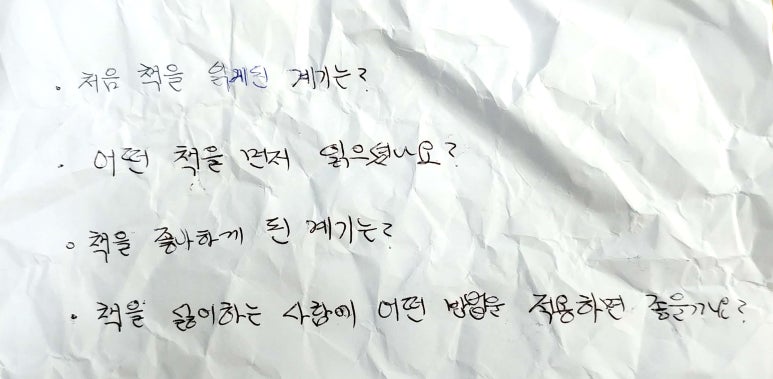 · 처음 책을 읽게된 계기는?
· 어떤 책을 먼저 읽으셨나요?
· 책을 좋아하게 된 계기는?
· 책을 싫어하는 사람에 어떤 방법을 적용하면 좋을까요?